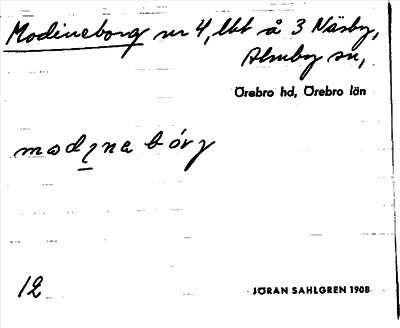 Modineborg nr 4, lbt å 3 Näsby,
Almby sn,
Örebro hd, Örebro län
modinabórg
12
JÖRAN SAHLGREN 1908